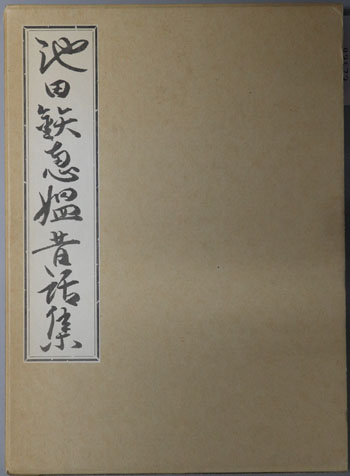 池田鉄恵媼昔話集